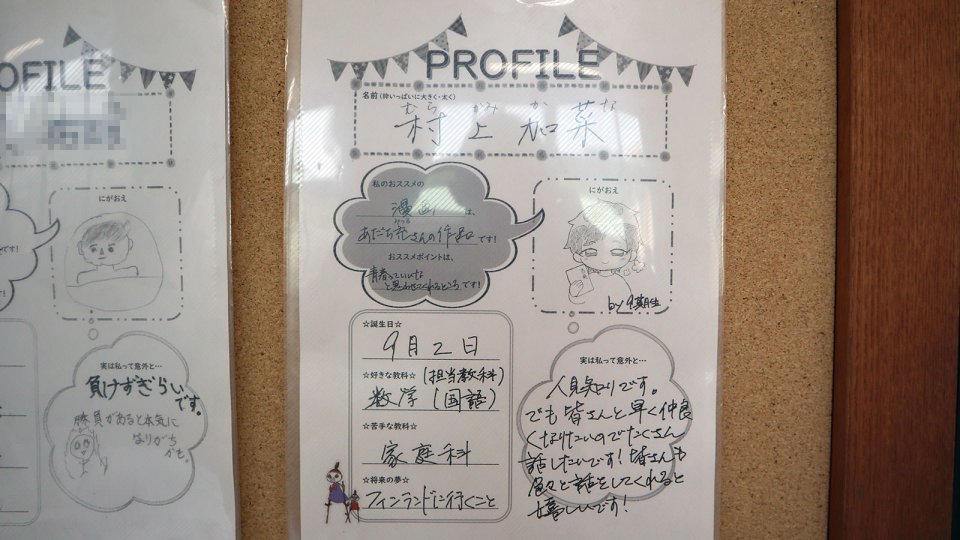 OFILE
にがおえ
です!
実は私って意外と…
負けずぎらい
です。
勝負があると本気に
なりがち
かも。
PROFILE
名前(枠いっぱいに大きく・太く)
むら がみ か な
村上 加菜
私のおススメの
漫画 は、
みつる
あだち充さんの作品 です!
おススメポイントは、
青春っていいな
と思わせてくれるところ です!
にがおえ
by 9期生
☆誕生日☆
9月2日
☆好きな教科☆ (担当教科)
数学 (国語)
☆苦手な教科☆
家庭科
☆将来の夢☆
フィンランドに行くこと
実は私って意外と…
人見知りです。
でも皆さんと早く仲良
くなりたいのでたくさん
話したいです!皆さんも
色々と話をしてくれると
嬉しいです!